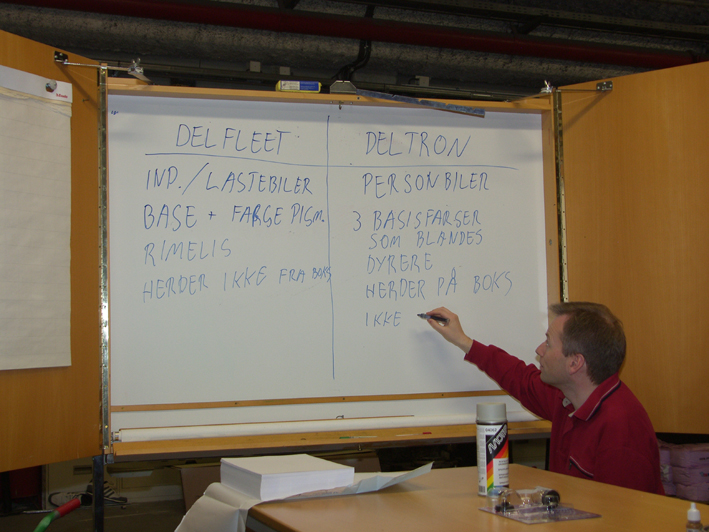 DELFLEET
IND./LASTEBILER
BASE + FARGE PIGM.
RIMELIG
HERDER IKKE FRA BOKS
DELTRON
PERSONBILER
3 BASISFARGER
SOM BLANDES
DYRERE
HERDER PÅ BOKS
IKKE